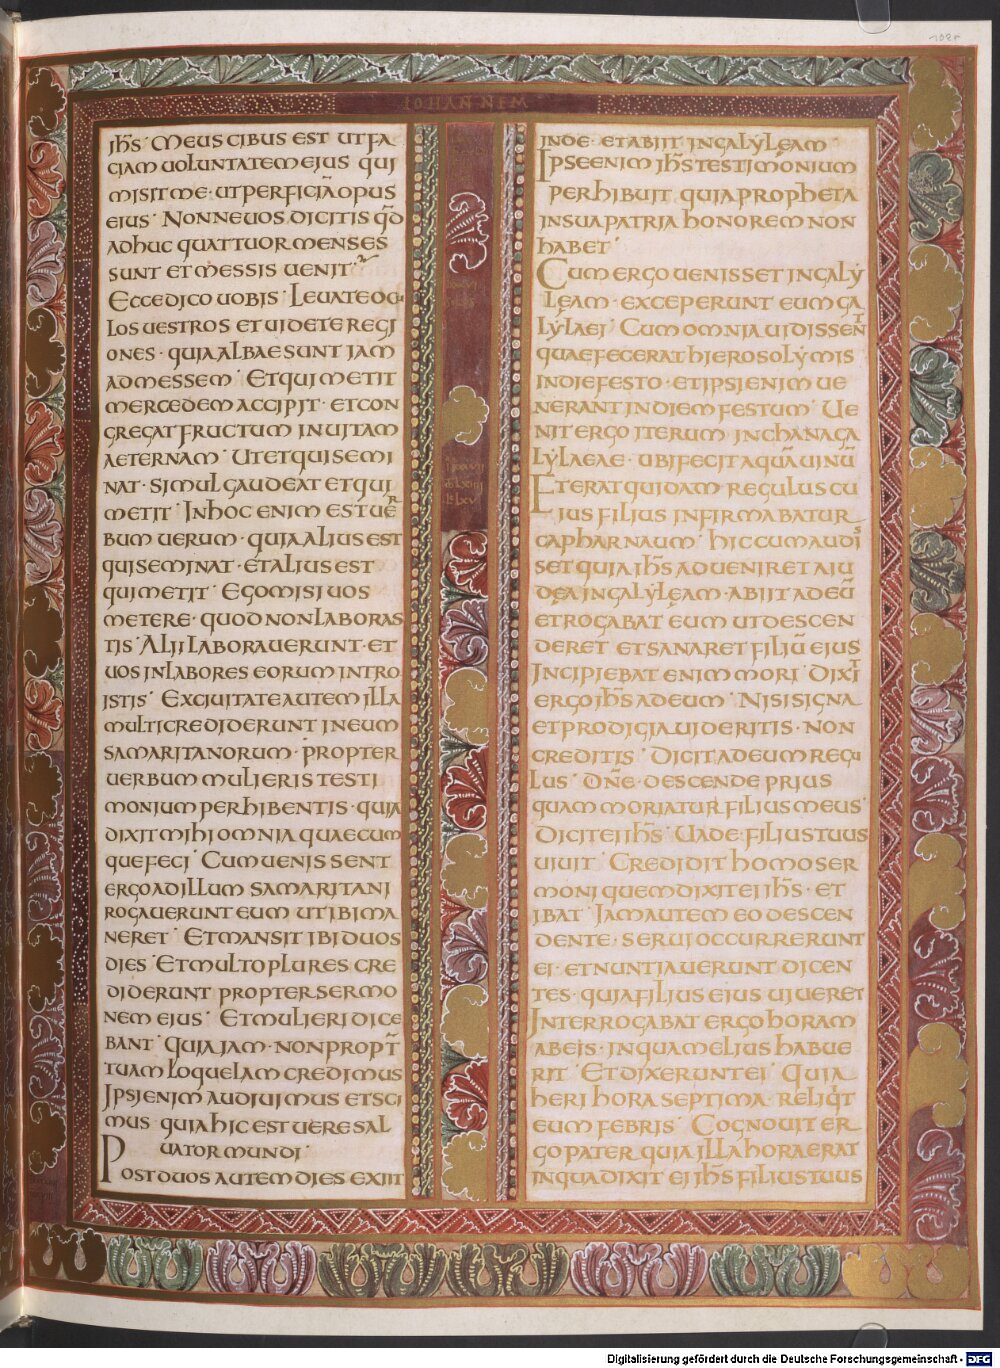 IOHANNEM
ih̅s · Meus cibus est ut fa
ciam voluntatem ejus qui
misit me · ut perficiā opus
eius · Nonne vos dicitis qd̄
adhuc quattuor menses
sunt et messis venit
Ecce dico vobis · Levate oc
los vestros et videte regi
ones · quia albae sunt jam
ad messem · Et qui metit
mercedem accipit · et con
gregat fructum in vitam
aeternam · Ut et qui semi
nat · simul gaudeat et qui
metit · In hoc enim est ver
bum verum · quia alius est
qui seminat · et alius est
qui metit · Ego misi vos
metere · quod non laboras
tis · Alii laboraverunt · et
vos in labores eorum intro
istis · Ex civitate autem illa
multi crediderunt in eum
samaritanorum · propter
verbum mulieris testi
monium perhibentis · quia
dixit mihi omnia quaecum
que feci · Cum venissent
ergo ad illum samaritani
rogaverunt eum ut ibi ma
neret · Et mansit ibi duos
dies · Et multo plures cre
diderunt propter sermo
nem ejus · Et mulieri dice
bant · quia jam · non propt̄
tuam loquelam credimus
Ipsi enim audivimus et sci
mus · quia hic est vere sal
vator mundi ·
Post duos autem dies exiit
inde · et abiit in galyleam
Ipse enim ih̅s testimonium
perhibuit quia propheta
in sua patria honorem non
habet ·
Cum ergo venisset in galy
leam · exceperunt eum ga
lylaei · Cum omnia vidissent
quae fecerat hierosolymis
in die festo · et ipsi enim ve
nerant in diem festum · Ve
nit ergo iterum in chana ga
lylaeae · ubi fecit aquā vinū
Et erat quidam regulus cu
ius filius infirmabatur
capharnaum · hic cum audis
set quia ih̅s adveniret a iu
dea in galyleam · abiit ad eū
et rogabat eum ut descen
deret et sanaret filiū ejus
Incipiebat enim mori · Dixit
ergo ih̅s ad eum · Nisi signa
et prodigia videritis · non
creditis · Dicit ad eum regu
lus · Dn̄e · descende prius
quam moriatur filius meus ·
Dicit ei ih̅s · Vade · filius tuus
vivit · Credidit homo ser
moni quem dixit ei ih̅s · et
ibat · Jam autem eo descen
dente · servi occurrerunt
ei · et nuntiaverunt dicen
tes · quia filius ejus viveret
Interrogabat ergo horam
ab eis · in qua melius habue
rit · Et dixerunt ei · quia
heri hora septima · reliqt
eum febris · Cognovit er
go pater quia illa hora erat
in qua dixit ei ih̅s filius tuus
Digitalisierung gefördert durch die Deutsche Forschungsgemeinschaft - DFG